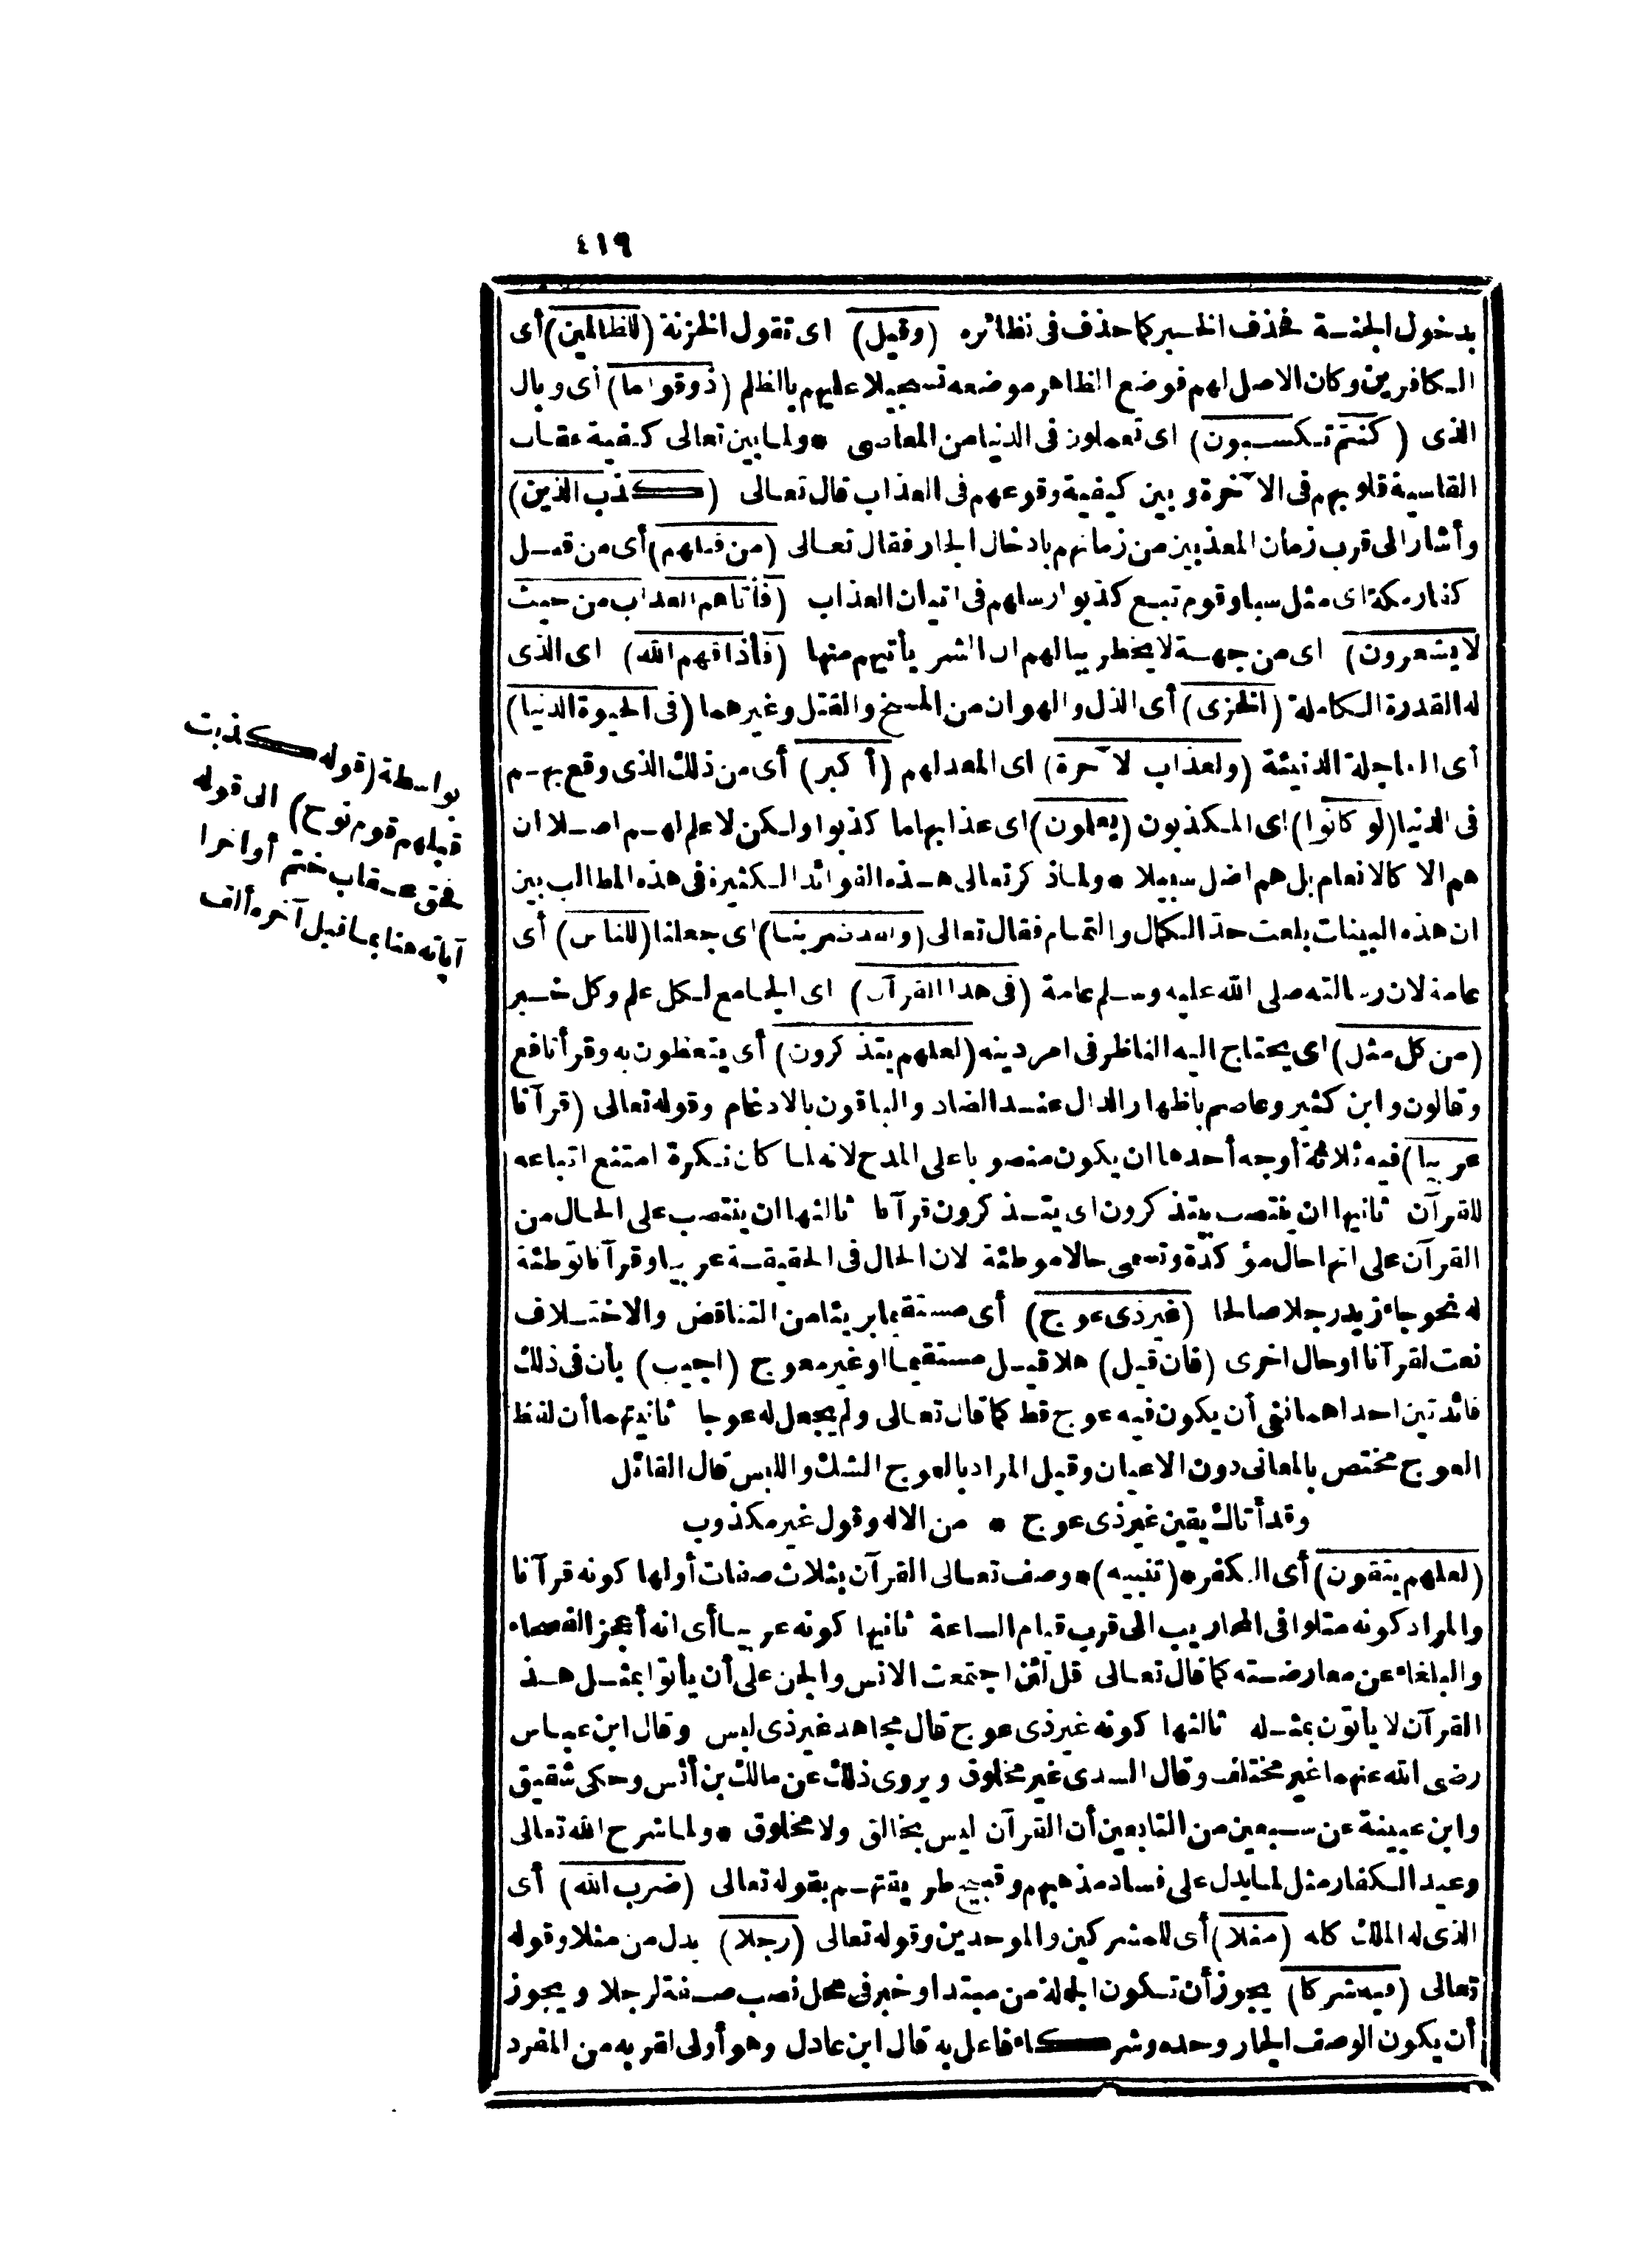 ٤١٩
بدخول الجنة فحذف الخبر كما حذف فى نظائره (وقيل) اى تقول الخزنة (للظالمين) أى
الكافرين وكان الاصل لهم فوضع الظاهر موضعه تسجيلا عليهم بالظلم (ذوقوا ما) أى وبال
الذى (كنتم تكسبون) اى تعملون فى الدنيا من المعاصى * ولما بين تعالى كيفية عقاب
القاسية قلوبهم فى الآخرة وبين كيفية وقوعهم فى العذاب قال تعالى (كذب الذين)
وأشار الى قرب زمان المعذبين من زمانهم بادخال الجار فقال تعالى (من قبلهم) أى من قبل
كفار مكة اى مثل سبا وقوم تبع كذبوا رسلهم فى اتيان العذاب (فأتاهم العذاب من حيث
لا يشعرون) اى من جهة لا يخطر ببالهم ان الشر يأتيهم منها (فأذاقهم الله) اى الذى
له القدرة الكاملة (الخزى) أى الذل والهوان من المسخ والقتل وغيرهما (فى الحيوة الدنيا)
أى العاجلة الدنيئة (ولعذاب الآخرة) اى المعد لهم (أكبر) أى من ذلك الذى وقع بهم
فى الدنيا (لو كانوا) اى المكذبون (يعلمون) اى عذابها ما كذبوا ولكن لا علم لهم اصلا ان
هم الا كالانعام بل هم اضل سبيلا * ولما ذكر تعالى هذه الفوائد الكثيرة فى هذه المطالب بين
ان هذه البينات بلغت حد الكمال والتمام فقال تعالى (ولقد ضربنا) اى جعلنا (للناس) أى
عامة لان رسالته صلى الله عليه وسلم عامة (فى هذا القرآن) اى الجامع لكل علم وكل خير
(من كل مثل) اى يحتاج اليه الناظر فى امر دينه (لعلهم يتذكرون) أى يتعظون به وقرأ نافع
وقالون وابن كثير وعاصم باظهار الدال عند الضاد والباقون بالادغام وقوله تعالى (قرآنا
عربيا) فيه ثلاثة أوجه أحدها ان يكون منصوبا على المدح لانه لما كان نكرة امتنع اتباعه
للقرآن ثانيها ان ينتصب بيتذكرون اى يتذكرون قرآنا ثالثها ان ينتصب على الحال من
القرآن على انها حال مؤكدة وتسمى حالا موطئة لان الحال فى الحقيقة عربيا وقرآنا توطئة
له نحو جاء زيد رجلا صالحا (غير ذى عوج) أى مستقيما بريئا من التناقض والاختلاف
نعت لقرآنا او حال اخرى (فان قيل) هلا قيل مستقيما او غير معوج (اجيب) بأن فى ذلك
فائدتين احداهما نفى أن يكون فيه عوج قط كما قال تعالى ولم يجعل له عوجا ثانيتهما أن لفظ
العوج مختص بالمعانى دون الاعيان وقيل المراد بالعوج الشك واللبس قال القائل
وقد أتاك يقين غير ذى عوج * من الاله وقول غير مكذوب
(لعلهم يتقون) أى الكفر * (تنبيه) * وصف تعالى القرآن بثلاث صفات أولها كونه قرآنا
والمراد كونه متلوا فى المحاريب الى قرب قيام الساعة ثانيها كونه عربيا أى انه أعجز الفصحاء
والبلغاء عن معارضته كما قال تعالى قل لئن اجتمعت الانس والجن على أن يأتوا بمثل هذ
القرآن لا يأتون بمثله ثالثها كونه غير ذى عوج قال مجاهد غير ذى لبس وقال ابن عباس
رضى الله عنهما غير مختلف وقال السدى غير مخلوق ويروى ذلك عن مالك بن أنس وحكى شقيق
وابن عيينة عن سبعين من التابعين أن القرآن ليس بخالق ولا مخلوق * ولما شرح الله تعالى
وعيد الكفار مثل لما يدل على فساد مذهبهم وقبيح طريقتهم بقوله تعالى (ضرب الله) أى
الذى له الملك كله (مثلا) أى للمشركين والموحدين وقوله تعالى (رجلا) بدل من مثلا وقوله
تعالى (فيه شركا) يجوز أن تكون الجملة من مبتدا وخبر فى محل نصب صفة لرجلا ويجوز
أن يكون الوصف الجار وحده وشركاء فاعل به قال ابن عادل وهو أولى لقربه من المفرد
بواسطة (قوله كذبت
قبلهم قوم نوح) الى قوله
فحق عقاب ختم أواخرا
آياته هنا بما قبل آخره ألف